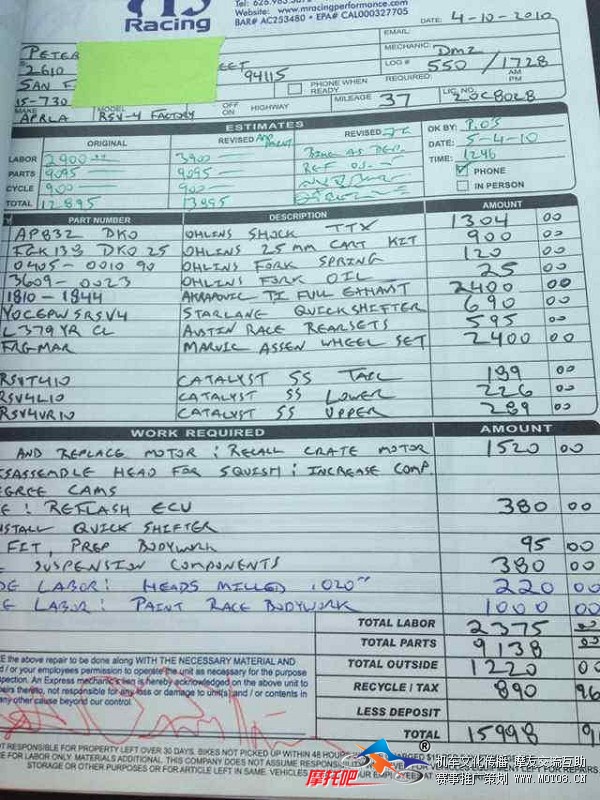 Racing
Tel: 626.
Website: www.mracingperformance.com
BAR# AC253480 • EPA# CAL000327705
DATE: 4-10-2010
PETER
EMAIL:
2610 EET
MECHANIC: DMZ
SAN F 94115
LOG # 550 / 1728
AM
PM
15-730
PHONE WHEN READY
REQUIRED:
MAKE MODEL OFF ON HIGHWAY
MILEAGE 37
LIC. NO. 20C8028
APRLA RSV-4 FACTORY
ESTIMATES
ORIGINAL REVISED REVISED
OK BY: P.OS
LABOR 2900 3900
DATE: 5-4-10
PARTS 9095 9095
TIME: 1246
CYCLE 900 900
PHONE
TOTAL 12.895 13895
IN PERSON
PART NUMBER DESCRIPTION AMOUNT
AP832 DKO OHLINS SHOCK TTX 1304 00
FGK 138 DKO 25 OHLINS 25MM CART KIT 900 00
0405-0010 90 OHLINS FORK SPRING 120 00
3609-0023 OHLINS FORK OIL 25 00
1810-1844 AKRAPOVIC TI FULL EXHAUST 2400 00
YOCEPWSRSV4 STARLANE QUICKSHIFTER 690 00
L379YR CL AUSTIN RACE REARSETS 595 00
FRGMAR MARVIC ASSEN WHEEL SET 2400 00
RSVT410 CATALYST SS TAIL 189 00
RSV4L10 CATALYST SS LOWER 226 00
RSV4VR10 CATALYST SS UPPER 289 00
WORK REQUIRED AMOUNT
AND REPLACE MOTOR : RECALL CRATE MOTOR 1520 00
SASSEMBLE HEAD FOR SQUISH : INCREASE COMP.
EGREE CAMS
E : REFLASH ECU 380 00
NSTALL QUICK SHIFTER
FIT, PREP BODYWORK 95 00
E SUSPENSION COMPONENTS 380 00
DE LABOR: HEADS MILLED .020" 220 00
E LABOR: PAINT RACE BODYWORK 1000 00
TOTAL LABOR 2375 00
TOTAL PARTS 9138 00
TOTAL OUTSIDE 1220 00
RECYCLE / TAX 890 96
LESS DEPOSIT
TOTAL 15998 91
E the above repair to be done along WITH THE NECESSARY MATERIAL AND
d / or your employees permission to operate the unit as necessary for the purpose
spection. An Express mechanics lien is hereby acknowledged on the above unit to
eirs thereto, not responsible for any loss or damage to unit(s) and / or contents in
any other cause beyond our control.
OT RESPONSIBLE FOR PROPERTY LEFT OVER 30 DAYS. BIKES NOT PICKED UP WITHIN 48 HOURS
E FOR LABOR ONLY. MATERIALS ADDITIONAL. THIS COMPANY DOES NOT ASSUME RESPONSIBILITY FOR REPAIRS
STORAGE OR OTHER PURPOSES OR FOR ARTICLE LEFT IN SAME. VEHICLES EMPLOYEES AT
摩托吧
机车文化传播 摩友交流互助
赛事推广策划 www.moto8.com